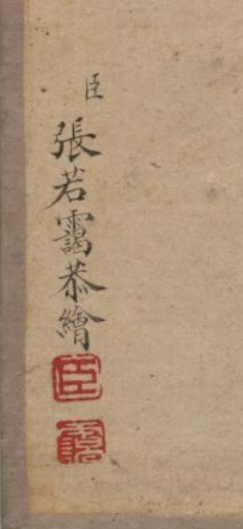 臣
張若靄恭繪
臣